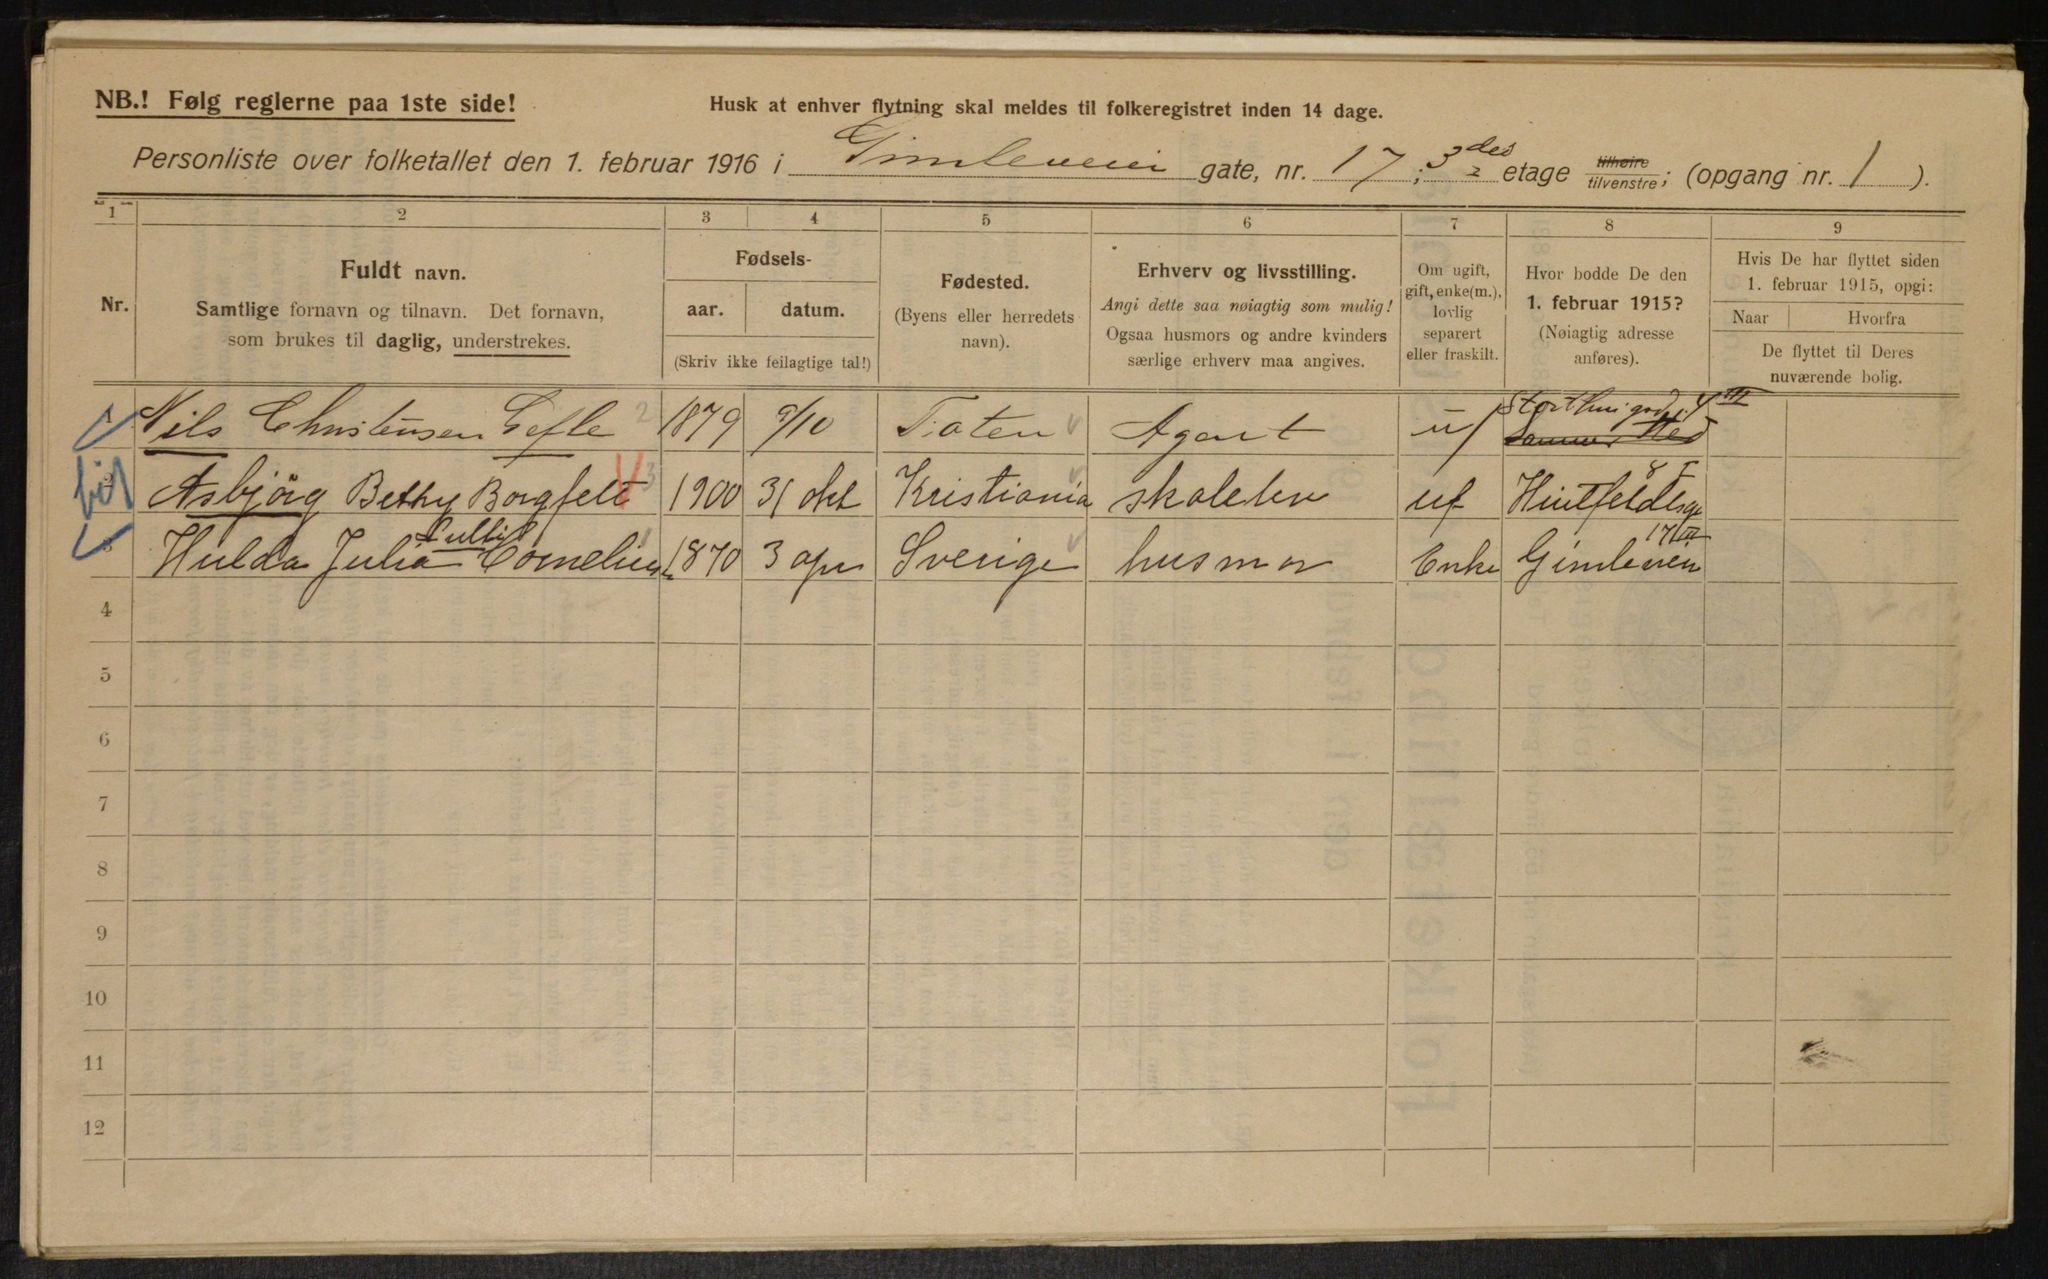 NB.! Følg reglerne paa 1ste side!
Husk at enhver flytning skal meldes til folkeregistret inden 14 dage.
Personliste over folketallet den 1. februar 1916 i Gimleveien gate, nr. 17; 3 des etage tilhøire tilvenstre; (opgang nr. 1).
1 2 3 4 5 6 7 8 9
Nr.
Fuldt navn.
Samtlige fornavn og tilnavn. Det fornavn,
som brukes til daglig, understrekes.
Fødsels-
aar. datum.
(Skriv ikke feilagtige tal!)
Fødested.
(Byens eller herredets
navn).
Erhverv og livsstilling.
Angi dette saa nøiagtig som mulig!
Ogsaa husmors og andre kvinders
særlige erhverv maa angives.
Om ugift,
gift, enke(m.),
lovlig
separert
eller fraskilt.
Hvor bodde De den
1. februar 1915?
(Nøiagtig adresse
anføres).
Hvis De har flyttet siden
1. februar 1915, opgi:
Naar Hvorfra
De flyttet til Deres
nuværende bolig.
Nils Christensen Gefle 2 1879 9/10 Toten Agent uf 4 III
2 Asbjörg Bethy Borgfelt 3 1900 31 okt Kristiania skoleelev uf Huitfeldtsgt 8 I
3 Hulda Julia Cornelius 1870 3 apr Sverige husmor Enke Gimleveien 17 III
4
5
6
7
8
9
10
11
12